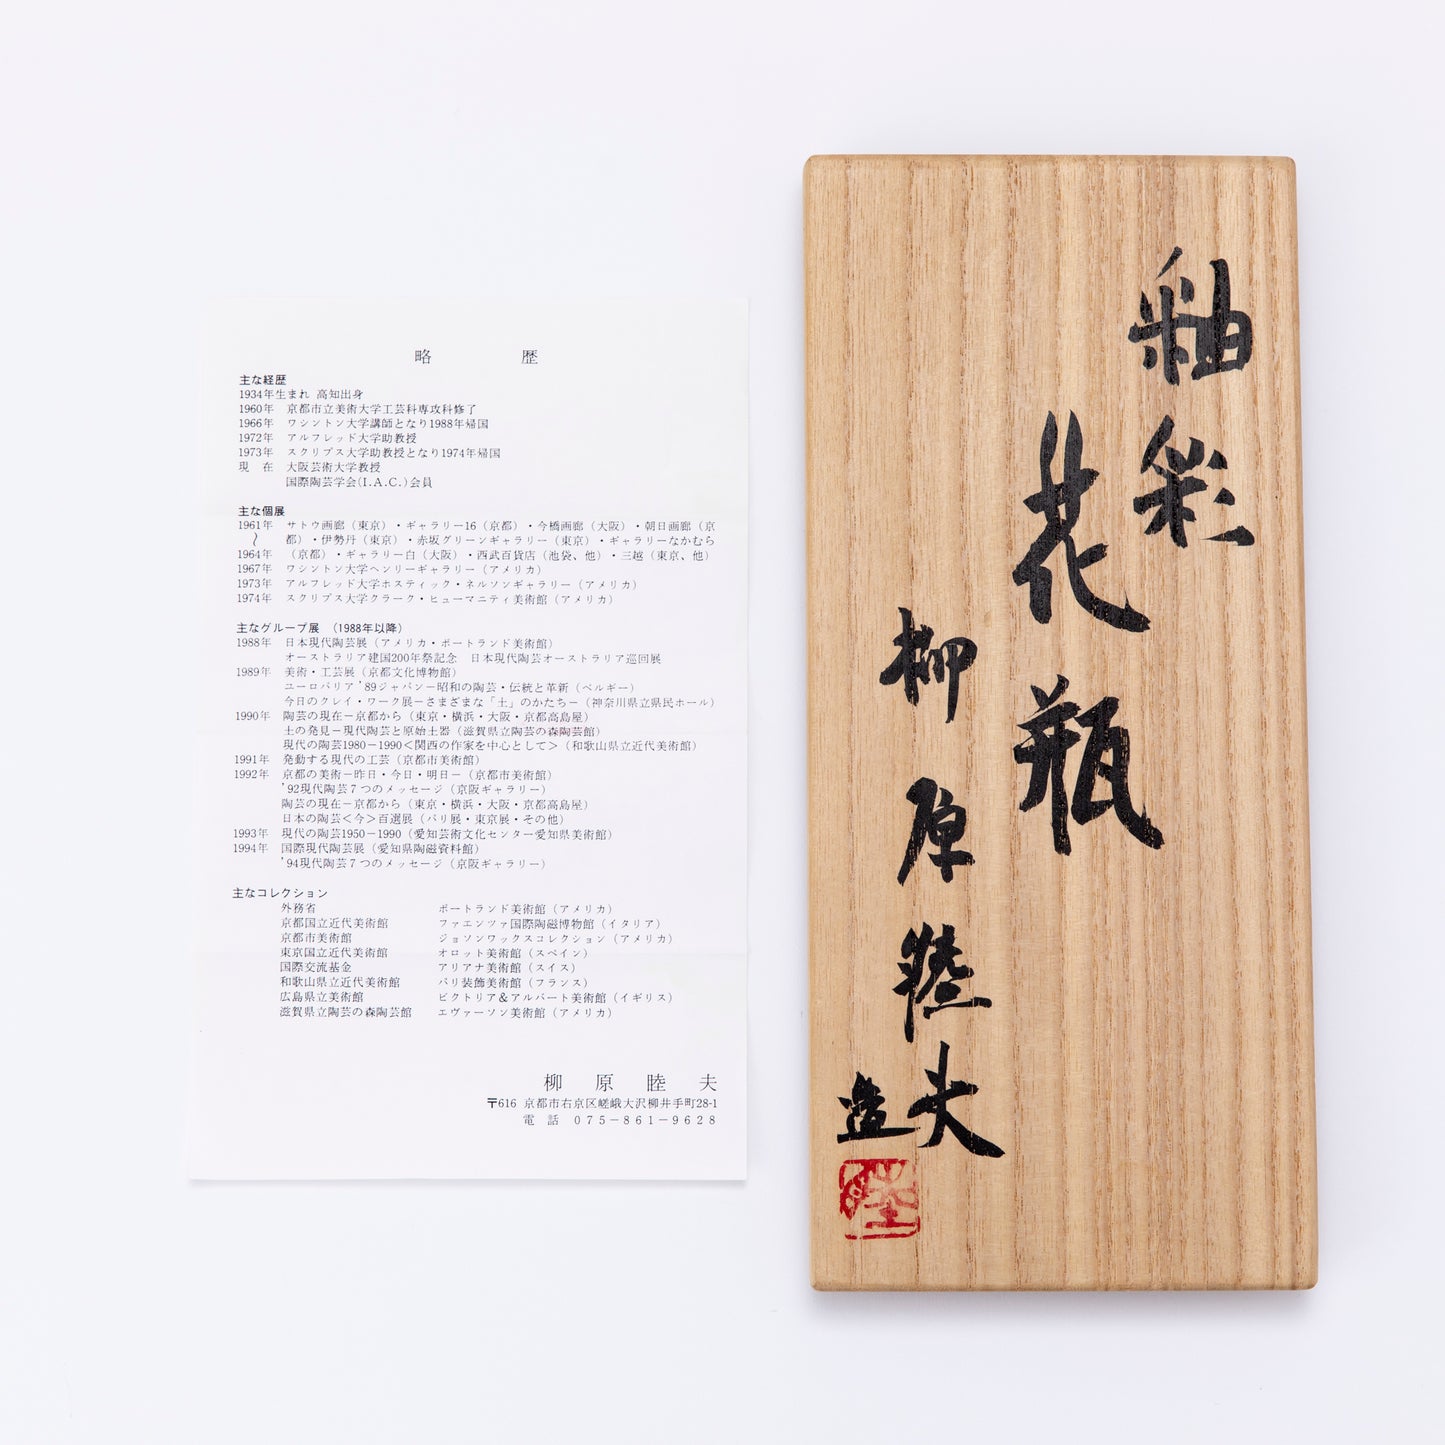 略歴
主な経歴
1934年生まれ 高知出身
1960年 京都市立美術大学工芸科専攻科修了
1966年 ワシントン大学講師となり1988年帰国
1972年 アルフレッド大学助教授
1973年 スクリプス大学助教授となり1974年帰国
現在 大阪芸術大学教授
国際陶芸学会(I.A.C.)会員
主な個展
1961年 サトウ画廊（東京）・ギャラリー16（京都）・今橋画廊（大阪）・朝日画廊（京
〜 都）・伊勢丹（東京）・赤坂グリーンギャラリー（東京）・ギャラリーなかむら
1964年 （京都）・ギャラリー白（大阪）・西武百貨店（池袋、他）・三越（東京、他）
1967年 ワシントン大学ヘンリーギャラリー（アメリカ）
1973年 アルフレッド大学ホスティック・ネルソンギャラリー（アメリカ）
1974年 スクリプス大学クラーク・ヒューマニティ美術館（アメリカ）
主なグループ展 （1988年以降）
1988年 日本現代陶芸展（アメリカ・ポートランド美術館）
オーストラリア建国200年祭記念 日本現代陶芸オーストラリア巡回展
1989年 美術・工芸展（京都文化博物館）
ユーロパリア'89ジャパン－昭和の陶芸・伝統と革新（ベルギー）
今日のクレイ・ワーク展－さまざまな「土」のかたち－（神奈川県立県民ホール）
1990年 陶芸の現在－京都から（東京・横浜・大阪・京都高島屋）
土の発見－現代陶芸と原始土器（滋賀県立陶芸の森陶芸館）
現代の陶芸1980－1990＜関西の作家を中心として＞（和歌山県立近代美術館）
1991年 発動する現代の工芸（京都市美術館）
1992年 京都の美術－昨日・今日・明日－（京都市美術館）
'92現代陶芸７つのメッセージ（京阪ギャラリー）
陶芸の現在－京都から（東京・横浜・大阪・京都高島屋）
日本の陶芸＜今＞百選展（パリ展・東京展・その他）
1993年 現代の陶芸1950－1990（愛知芸術文化センター愛知県美術館）
1994年 国際現代陶芸展（愛知県陶磁資料館）
'94現代陶芸７つのメッセージ（京阪ギャラリー）
主なコレクション
外務省 ポートランド美術館（アメリカ）
京都国立近代美術館 ファエンツァ国際陶磁博物館（イタリア）
京都市美術館 ジョソンワックスコレクション（アメリカ）
東京国立近代美術館 オロット美術館（スペイン）
国際交流基金 アリアナ美術館（スイス）
和歌山県立近代美術館 パリ装飾美術館（フランス）
広島県立美術館 ビクトリア＆アルバート美術館（イギリス）
滋賀県立陶芸の森陶芸館 エヴァーソン美術館（アメリカ）
柳原睦夫
〒616 京都市右京区嵯峨大沢柳井手町28-1
電話 075－861－9628
釉彩
花瓶
柳原睦夫
造
睦